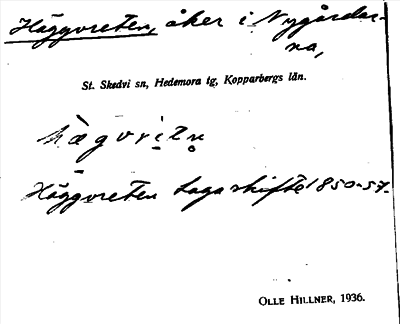 Häggvreten, åker i Nygårdar-
na,
St. Skedvi sn, Hedemora tg, Kopparbergs län.
Häggvreten Laga skifte 1850-57.
OLLE HILLNER, 1936.